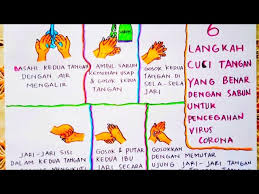 BASAHI KEDUA TANGAN
DENGAN AIR
MENGALIR
AMBIL SABUN
KEMUDIAN USAP
& GOSOK KEDUA
TANGAN
GOSOK KEDUA
TANGAN DI
SELA-SELA
JARI
6
LANGKAH
CUCI TANGAN
YANG BENAR
DENGAN SABUN
UNTUK
PENCEGAHAN
VIRUS
CORONA
JARI-JARI SISI
DALAM KEDUA TANGAN
GOSOK & PUTAR
KEDUA IBU
JARI SECARA
GOSOKKAN DENGAN MEMUTAR
UJUNG JARI-JARI TANGAN